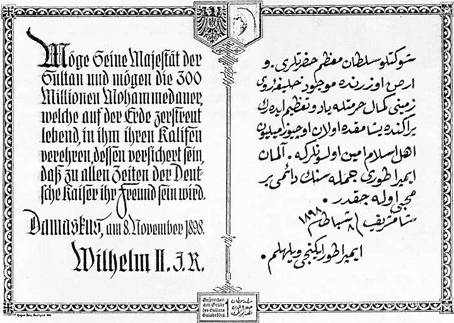 Möge Seine Majestät der
Sultan und mögen die 300
Millionen Mohammedaner,
welche auf der Erde zerstreut
lebend, in ihm ihren Kalifen
verehren, dessen versichert sein,
daß zu allen Zeiten der Deut-
sche Kaiser ihr Freund sein wird.
Damaskus, am 8. November 1898.
Wilhelm II. I.R.
شوكتلو سلطان معظم حضرتلرى و
ارض اوزرنده موجود خليفۀ روى
زمينى كمال حرمتله ياد و تعظيم ايدەرك
پراكنده ياشامقده اولان اوچيوز ميليون
اهل اسلام امين اولسونلركه آلمان
ايمپراطورى جمله سنك دائمى بر
محبى اوله جقدر.
ايمپراطور ايكنجى ويلهلم.
Gesprochen
am Grabe
des Sultans
Saladin